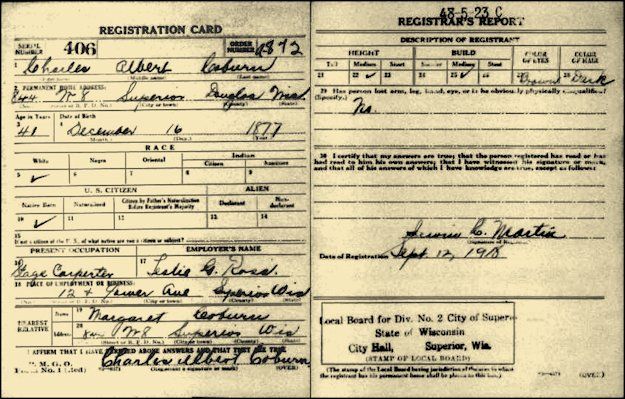 REGISTRATION CARD
SERIAL NUMBER 406 ORDER NUMBER 1872
1 Charles Albert Coburn
(First name) (Middle name) (Last name)
2 PERMANENT HOME ADDRESS:
844 W-8 Superior Douglas Wis.
(No.) (Street or R. F. D. No.) (City or town) (County) (State)
Age in Years Date of Birth
3 41 4 December 16 1877
(Month) (Day) (Year)
RACE
White Negro Oriental Indian
Citizen Noncitizen
5 ✓ 6 7 8 9
U. S. CITIZEN ALIEN
Native Born Naturalized Citizen by Father's Naturalization Before Registrant's Majority Declarant Non-declarant
10 ✓ 11 12 13 14
15
If not a citizen of the U. S., of what nation are you a citizen or subject?
PRESENT OCCUPATION EMPLOYER'S NAME
16 Stage Carpenter 17 Leslie G. Ross
18 PLACE OF EMPLOYMENT OR BUSINESS:
12 & Tower Ave Superior Wis
(No.) (Street or R. F. D. No.) (City or town) (County) (State)
NEAREST RELATIVE Name 19 Margaret Coburn
Address 20 844 W8 Superior Wis
(No.) (Street or R. F. D. No.) (City or town) (State)
I AFFIRM THAT I HAVE VERIFIED ABOVE ANSWERS AND THAT THEY ARE TRUE
P. M. G. O.
Form No. 1 (Red) Charles Albert Coburn
(Registrant's signature or mark) (OVER)
48-5-23 C
REGISTRAR'S REPORT
DESCRIPTION OF REGISTRANT
HEIGHT BUILD COLOR OF EYES COLOR OF HAIR
Tall Medium Short Slender Medium Stout
21 22 ✓ 23 24 25 ✓ 26 27 Brown 28 Dark
29 Has person lost arm, leg, hand, eye, or is he obviously physically disqualified?
(Specify.) No.
30 I certify that my answers are true; that the person registered has read or has had read to him his own answers; that I have witnessed his signature or mark, and that all of his answers of which I have knowledge are true, except as follows:
Martin
(Signature of Registrar)
Date of Registration Sept 12, 1918
Local Board for Div. No. 2 City of Superior
State of Wisconsin
City Hall, Superior, Wis.
(STAMP OF LOCAL BOARD)
(The stamp of the Local Board having jurisdiction of the area in which the registrant has his permanent home shall be placed in this box.)
(OVER)